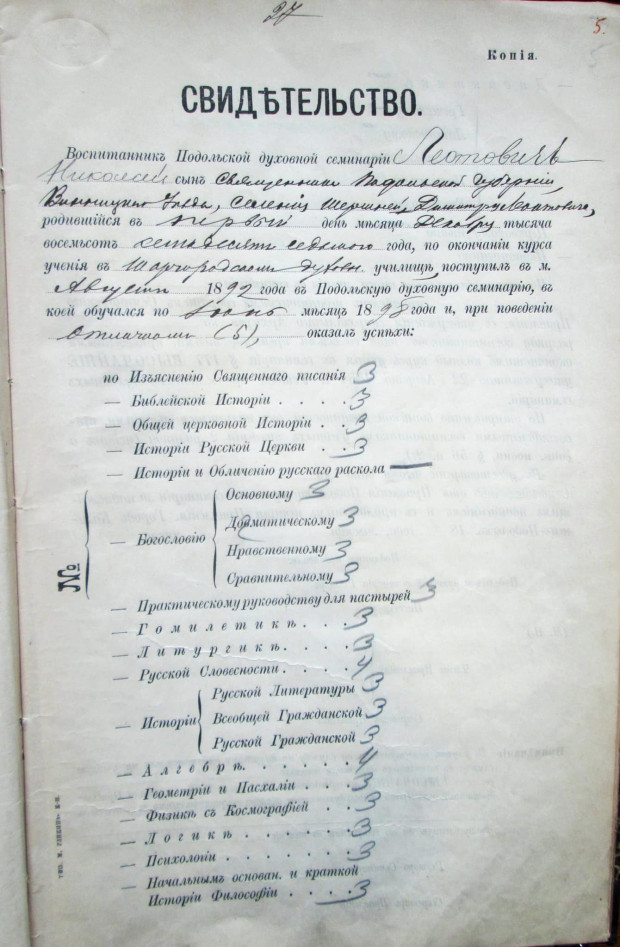 27
5.
Копія.
СВИДѢТЕЛЬСТВО.
Воспитанникъ Подольской духовной семинаріи Леонтовичъ
Николай сынъ Священника Подольской губерніи,
Винницкаго уѣзда, селенія Шершней Димитрія Леонтовича,
родившійся въ первый день мѣсяца Декабря тысяча
восемьсотъ семьдесятъ седьмого года, по окончаніи курса
ученія въ Шаргородскомъ духовн. училищѣ, поступилъ въ м.
Августѣ 1892 года въ Подольскую духовную семинарію, въ
коей обучался по Іюнь мѣсяцъ 1898 года и, при поведеніи
отличномъ (5), оказалъ успѣхи:
по Изъясненію Священнаго писанія 3
— Библейской Исторіи . . . . 3
— Общей церковной Исторіи . . 3
— Исторіи Русской Церкви . . . . 3
— Исторіи и Обличенію русскаго раскола —
№
— Богословію
Основному 3
Догматическому 3
Нравственному 3
Сравнительному 3
— Практическому руководству для пастырей 3
— Гомилетикѣ . . . . 3
— Литургикѣ . . . . 3
— Русской Словесности . . . . 4
— Исторіи
Русской Литературы 3
Всеобщей Гражданской 3
Русской Гражданской 3
— Алгебрѣ . . . . . . 4
— Геометріи и Пасхаліи . . . 3
— Физикѣ съ Космографіей . . 3
— Логикѣ . . . . . . 3
— Психологіи . . . . . . . . 3
— Начальнымъ основан. и краткой
Исторіи Философіи . . . . 3